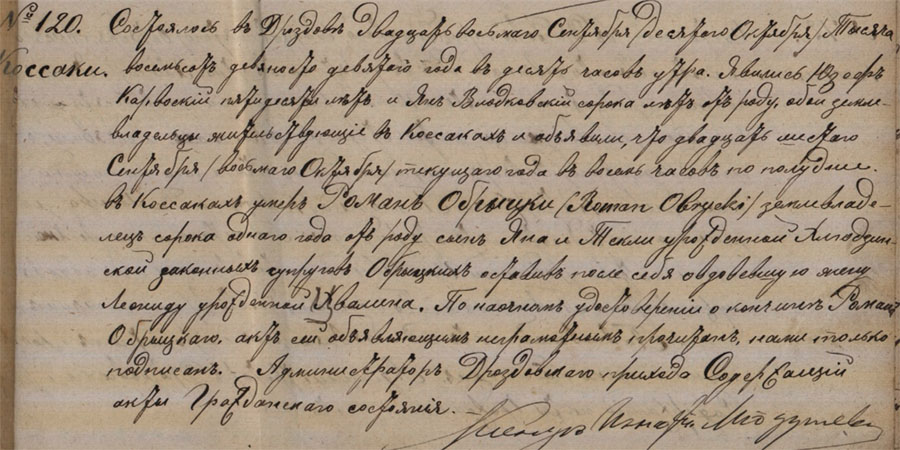 № 120. Состоялось въ Дроздовѣ двадцать восьмаго Сентября /десятого Октября/ Тысяча
Коссаки. восемьсотъ девяносто девятого года въ десять часовъ утра. Явились Юзефъ
Карвоскій пятидесяти лѣтъ и Янъ Влодковскій сорока лѣтъ отъ роду, оба земле-
владельцы жительствующіе въ Коссакахъ и объявили, что двадцать шестаго
Сентября /восьмаго Октября/ текущаго года въ восемь часовъ по полудне.
въ Коссакахъ умеръ Романъ Обрыцки /Roman Obrycki/ землевладе-
лецъ сорока однаго года отъ роду сынъ Яна и Текли урожденной
ской законныхъ супруговъ Обрыцкихъ оставивъ после себя овдовевшую жену
Леониду урожденной. По наочномъ удостовереніи о кончинѣ Романа
Обрыцкаго, актъ сей объявляющимъ неграмотнымъ прочитанъ, нами только
подписанъ. Администраторъ Дроздовскаго прихода Содержащій
акты Гражданскаго состоянія.
Ксендзъ